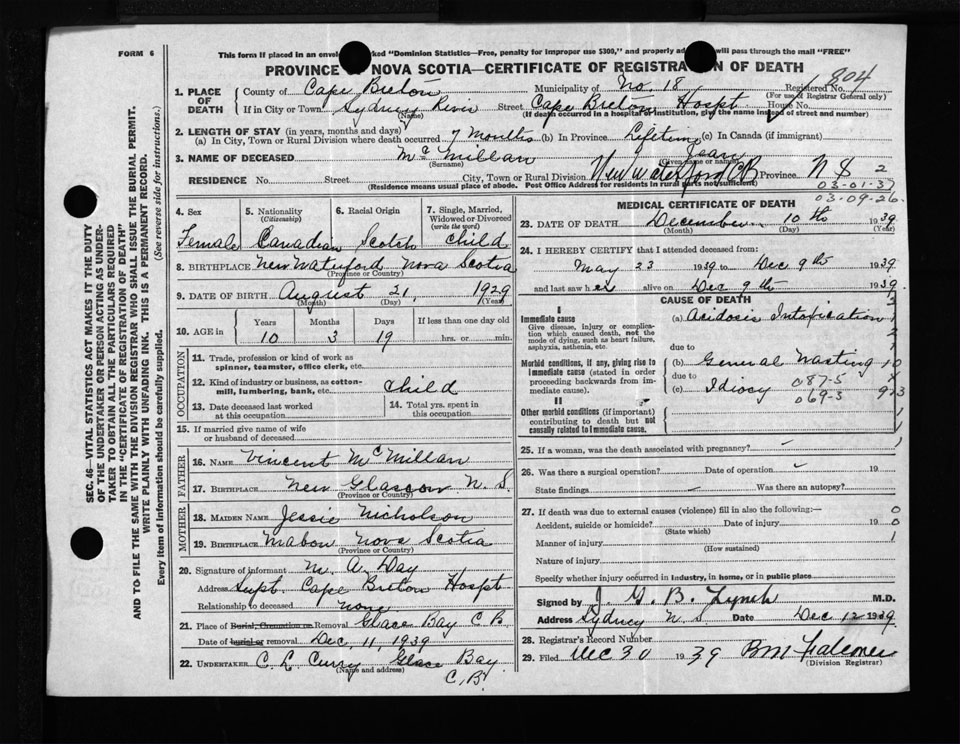 FORM 6
This form if placed in an envel rked "Dominion Statistics—Free, penalty for improper use $300," and properly ad will pass through the mail "FREE"
PROVINCE NOVA SCOTIA—CERTIFICATE OF REGISTRAT N OF DEATH
804
1. PLACE OF DEATH
County of Cape Breton Municipality of No. 18 Registered No.
(For use of Registrar General only)
If in City or Town Sydney River Street Cape Breton Hospt House No.
(Name) (If death occurred in a hospital or institution, give the name instead of street and number)
2. LENGTH OF STAY (in years, months and days)
(a) In City, Town or Rural Division where death occurred 7 Months (b) In Province Lifetime (c) In Canada (if immigrant)
3. NAME OF DECEASED McMillan Jean
(Surname) (Given name or names)
RESIDENCE No. Street City, Town or Rural Division New Waterford CB Province N S 2
(Residence means usual place of abode. Post Office Address for residents in rural parts not sufficient)
03-01-37
03-09-26
4. Sex
Female
5. Nationality
(Citizenship)
Canadian
6. Racial Origin
Scotch
7. Single, Married, Widowed or Divorced
(write the word)
child
8. BIRTHPLACE New Waterford Nova Scotia
(Province or Country)
9. DATE OF BIRTH August 21, 1929
(Month) (Day) (Year)
10. AGE in
Years Months Days If less than one day old
10 3 19 hrs. or min.
OCCUPATION
11. Trade, profession or kind of work as spinner, teamster, office clerk, etc.
12. Kind of industry or business, as cotton-mill, lumbering, bank, etc. child
13. Date deceased last worked at this occupation
14. Total yrs. spent in this occupation
15. If married give name of wife or husband of deceased
FATHER
16. NAME Vincent McMillan
17. BIRTHPLACE New Glascow N. S.
(Province or Country)
MOTHER
18. MAIDEN NAME Jessie Nicholson
19. BIRTHPLACE Mabou Nova Scotia
(Province or Country)
20. Signature of informant M. A. Day
Address Supt. Cape Breton Hospt
Relationship to deceased none
21. Place of Burial, Cremation or Removal Glace Bay C B.
Date of burial or removal Dec. 11, 1939
22. UNDERTAKER C. L. Curry Glace Bay
(Name and address) C.B.
MEDICAL CERTIFICATE OF DEATH
23. DATE OF DEATH December 10th 1939
(Month) (Day) (Year)
24. I HEREBY CERTIFY that I attended deceased from:
May 23 1939 to Dec 9th 1939
and last saw her alive on Dec 9th 1939.
CAUSE OF DEATH
I
Immediate cause
Give disease, injury or complication which caused death, not the mode of dying, such as heart failure, asphyxia, asthenia, etc.
(a) Acidosis Intoxication
due to
Morbid conditions, if any, giving rise to immediate cause (stated in order proceeding backwards from immediate cause).
(b) General Wasting
due to 087-5
(c) Idiocy 069-3
II
Other morbid conditions (if important) contributing to death but not causally related to immediate cause.
25. If a woman, was the death associated with pregnancy?
26. Was there a surgical operation? Date of operation 19
State findings Was there an autopsy?
27. If death was due to external causes (violence) fill in also the following:— 0
Accident, suicide or homicide? Date of injury 19 0
(State which)
Manner of injury 1
(How sustained)
Nature of injury
Specify whether injury occurred in industry, in home, or in public place
Signed by J. G. B. Lynch M.D.
Address Sydney N. S Date Dec 12 1939.
28. Registrar's Record Number
29. Filed Dec 30 1939 Falconer
(Division Registrar)
SEC. 46—VITAL STATISTICS ACT MAKES IT THE DUTY
OF THE UNDERTAKER OR PERSON ACTING AS UNDER-
TAKER TO OBTAIN ALL THE PARTICULARS REQUIRED
IN THE "CERTIFICATE OF REGISTRATION OF DEATH"
AND TO FILE THE SAME WITH THE DIVISION REGISTRAR WHO SHALL ISSUE THE BURIAL PERMIT.
WRITE PLAINLY WITH UNFADING INK. THIS IS A PERMANENT RECORD.
Every item of information should be carefully supplied. (See reverse side for instructions.)